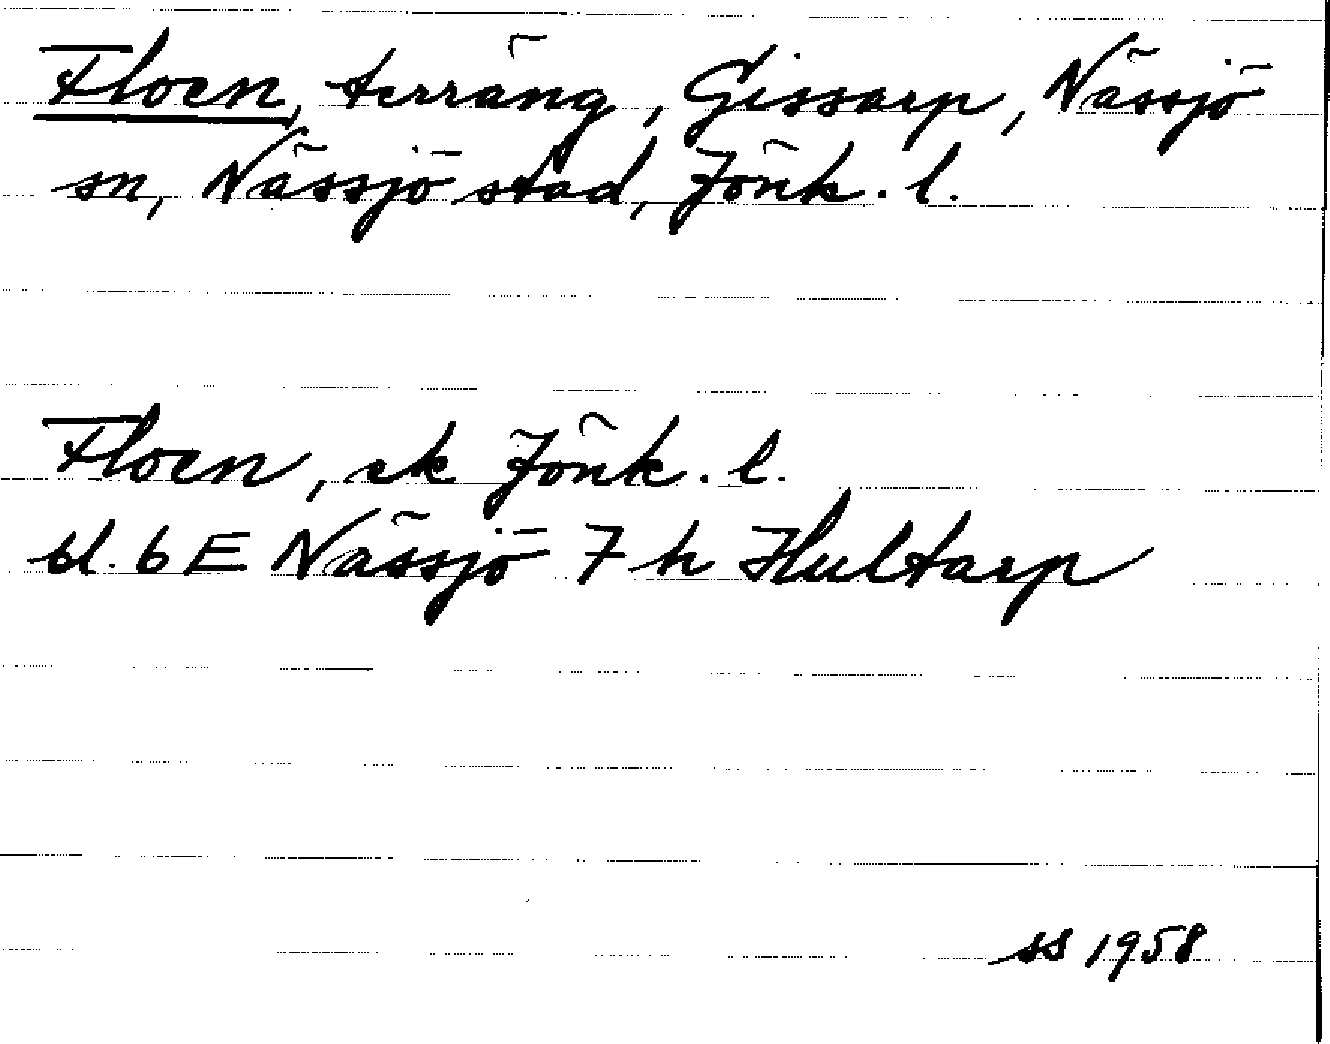 Floen, terräng, Gissarp, Nässjö
sn, Nässjö stad, Jönk. l.
Floen, ek Jönk. l.
bl. 6 E Nässjö 7 h Hultarp
SS 1958